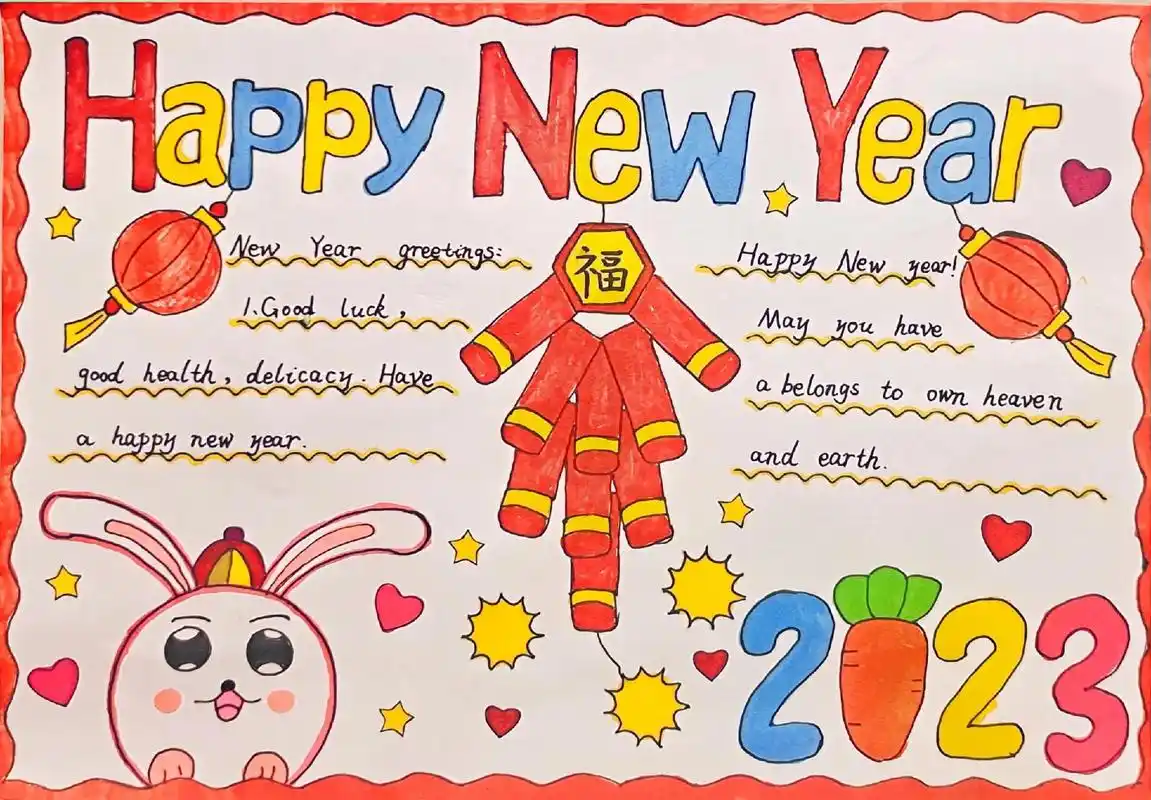 Happy New Year
New Year greetings:
1.Good luck,
good health, delicacy. Have
a happy new year.
福
Happy New year!
May you have
a belongs to own heaven
and earth.
2023